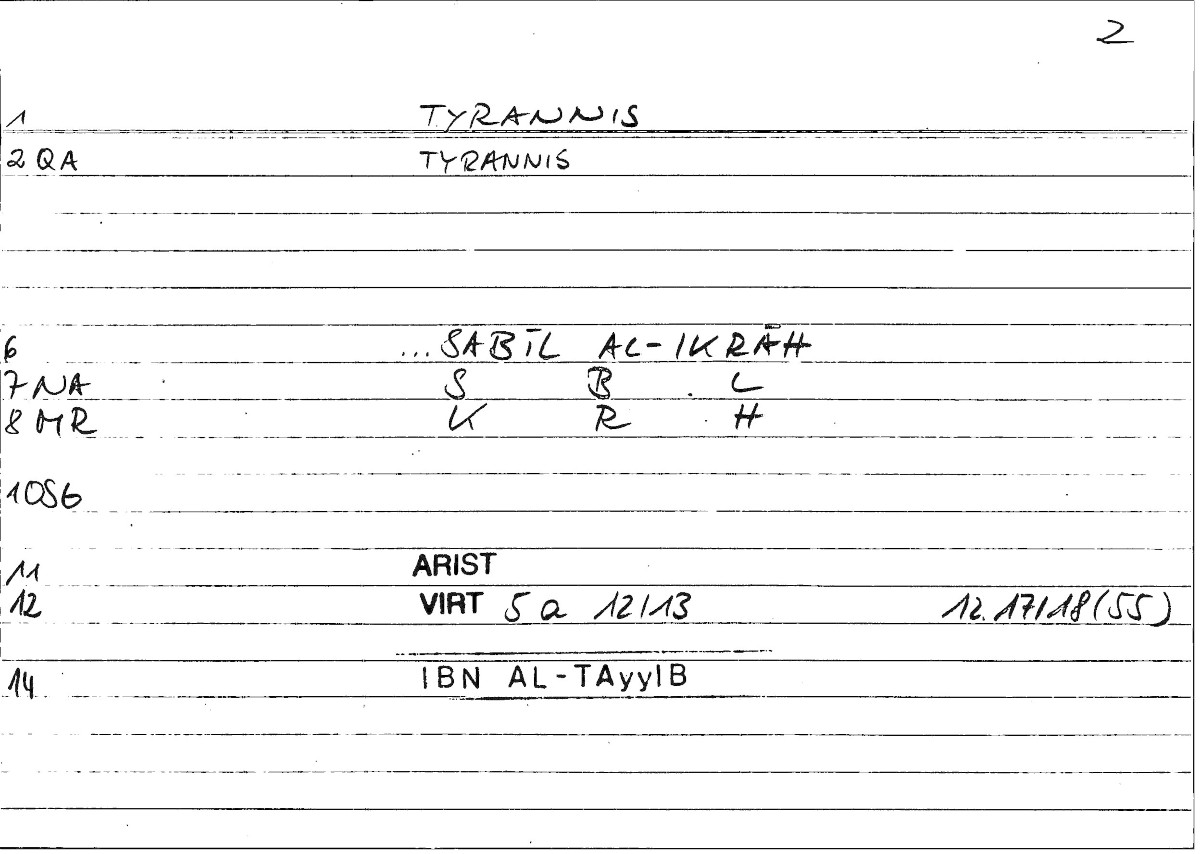 2
1 TYRANNIS
2 QA TYRANNIS
6 ...SABĪL AL-IKRĀH
7 NA S B L
8 MR K R H
10SG
11 ARIST
12 VIRT 5 a 12/13 12.17/18(55)
14 IBN AL-TAyyIB